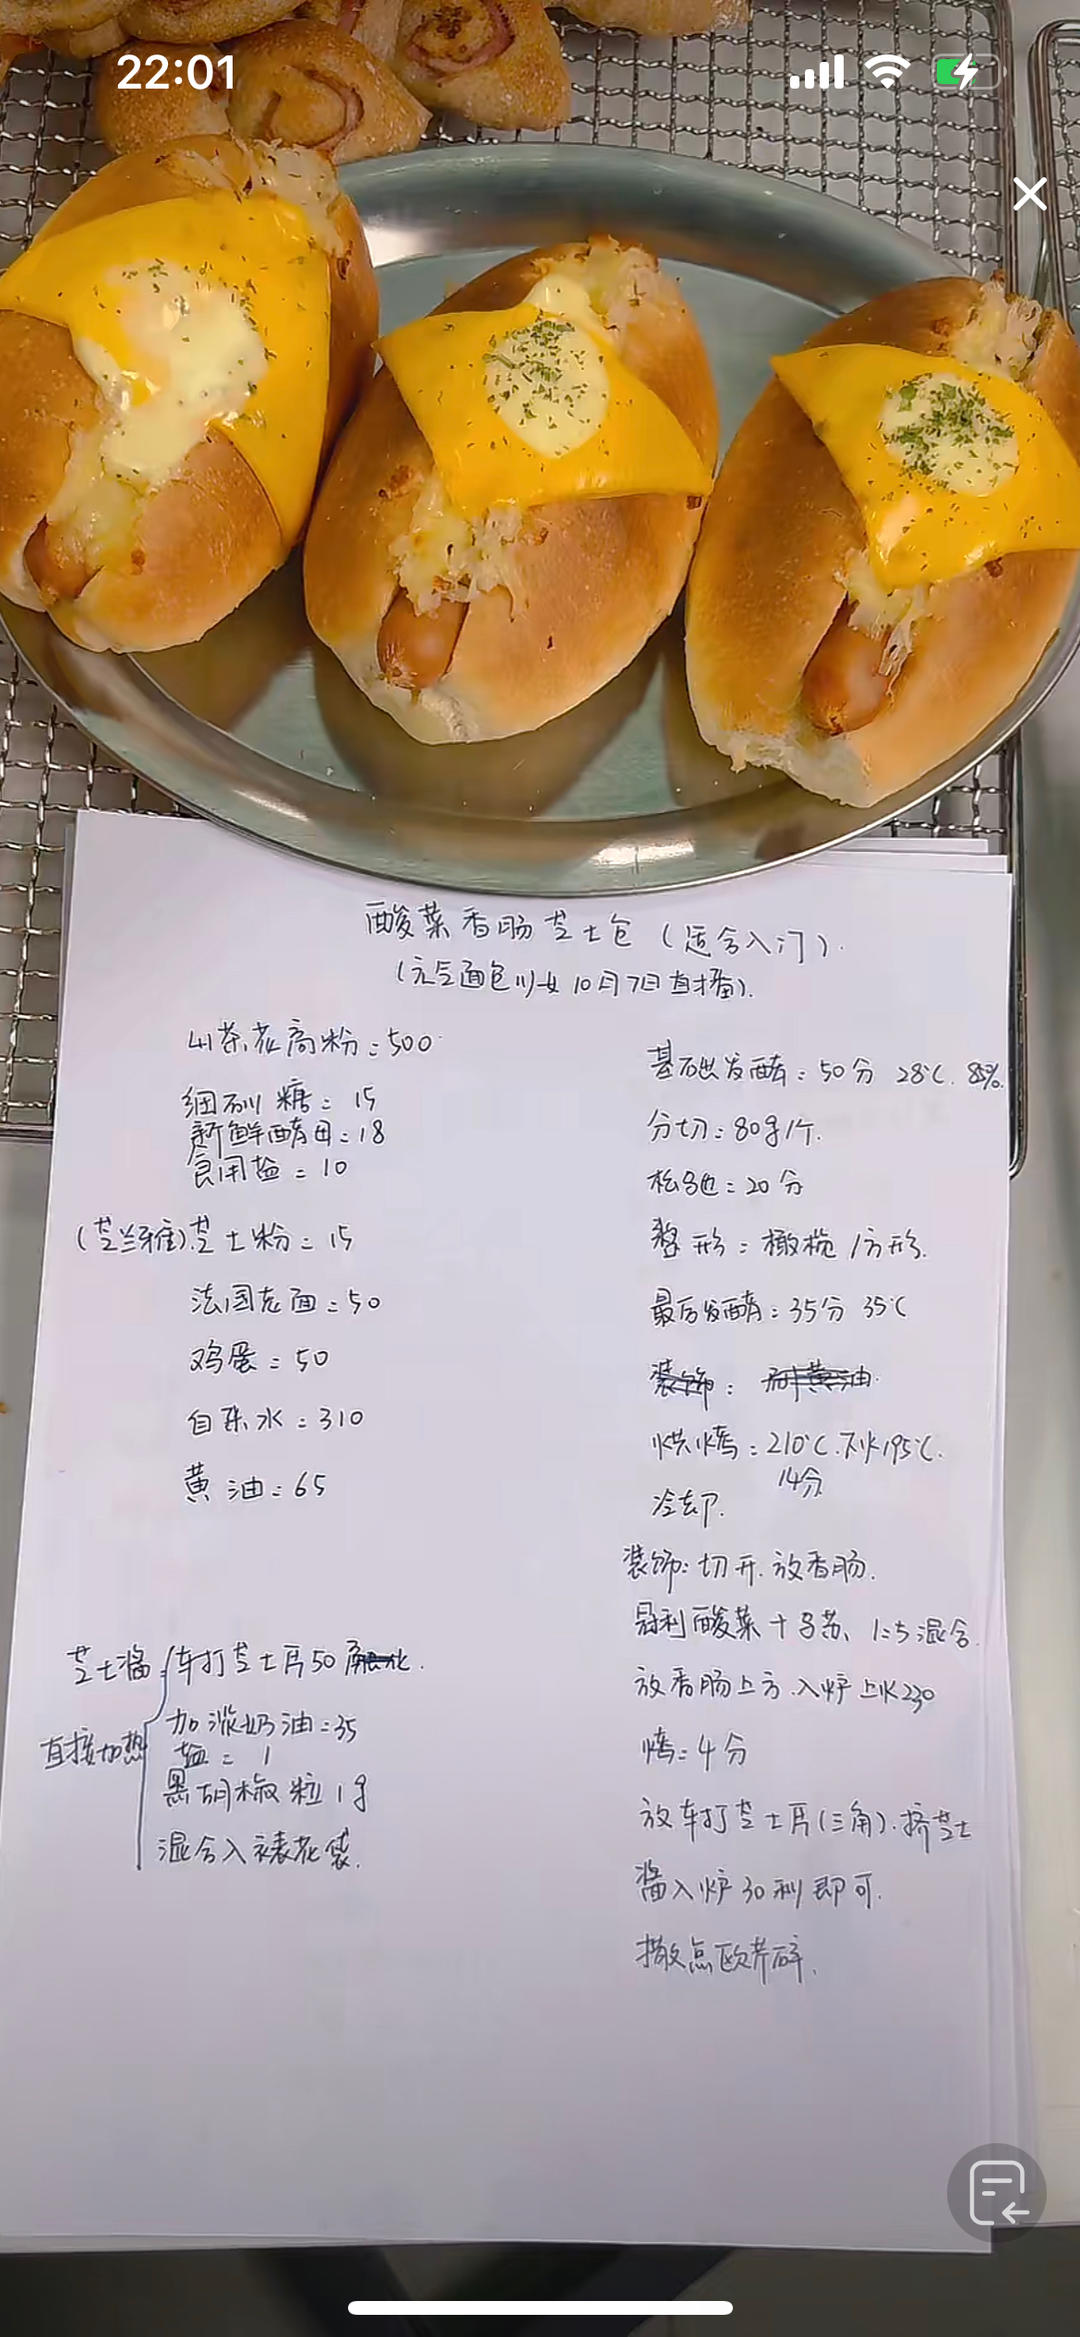 22:01
酸菜香肠芝士包（适合入门）.
（元气面包少女10月7日直播）.
山茶花高粉：500
细砂糖：15
新鲜酵母：18
食用盐：10
（芝兰雅）芝士粉：15
法国老面：50
鸡蛋：50
自来水：310
黄油：65
芝士酱：车打芝士片50
加淡奶油：35
直接加热
盐：1
黑胡椒粒1g
混合入裱花袋.
基础发酵：50分 28℃. 85%.
分切：80g/个.
松弛：20分
整形：橄榄/方形.
最后发酵：35分 35℃
装饰：耐黄油.
烘烤：210℃.下火195℃.
14分
冷却.
装饰：切开.放香肠.
酸菜+马苏、1:5混合.
放香肠上方.入炉上火230
烤：4分
放车打芝士片（三角）.挤芝士
酱入炉30秒即可.
撒点欧芹碎.